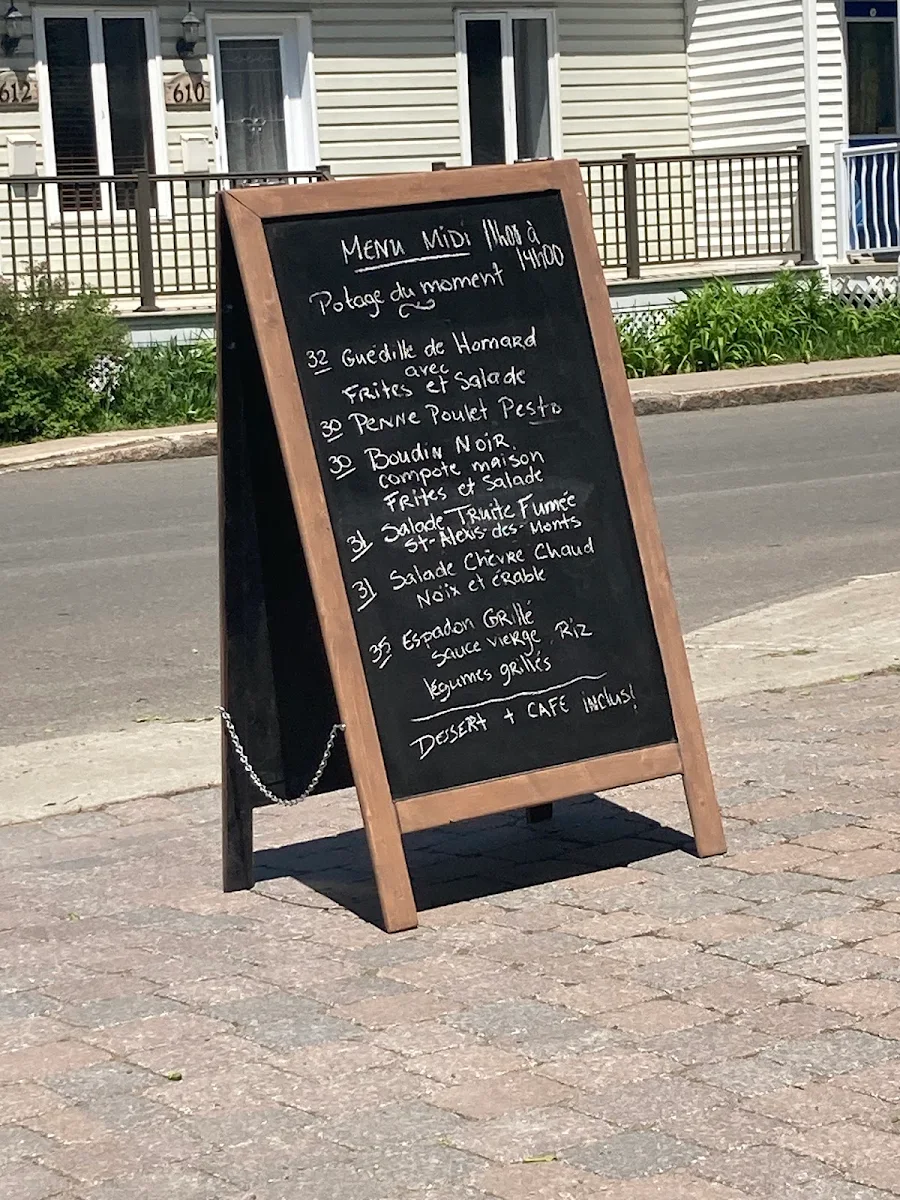 612
610
MENU MIDI 11h00 à
14h00
Potage du moment
32 Guédille de Homard
avec
Frites et Salade
30 Penne Poulet Pesto
30 Boudin Noir,
compote maison
Frites et Salade
31 Salade Truite Fumée
St-Alexis-des-Monts
31 Salade Chèvre Chaud
Noix et érable
35 Espadon Grillé
Sauce vierge Riz
légumes grillés
DESSERT + CAFE INCLUS!